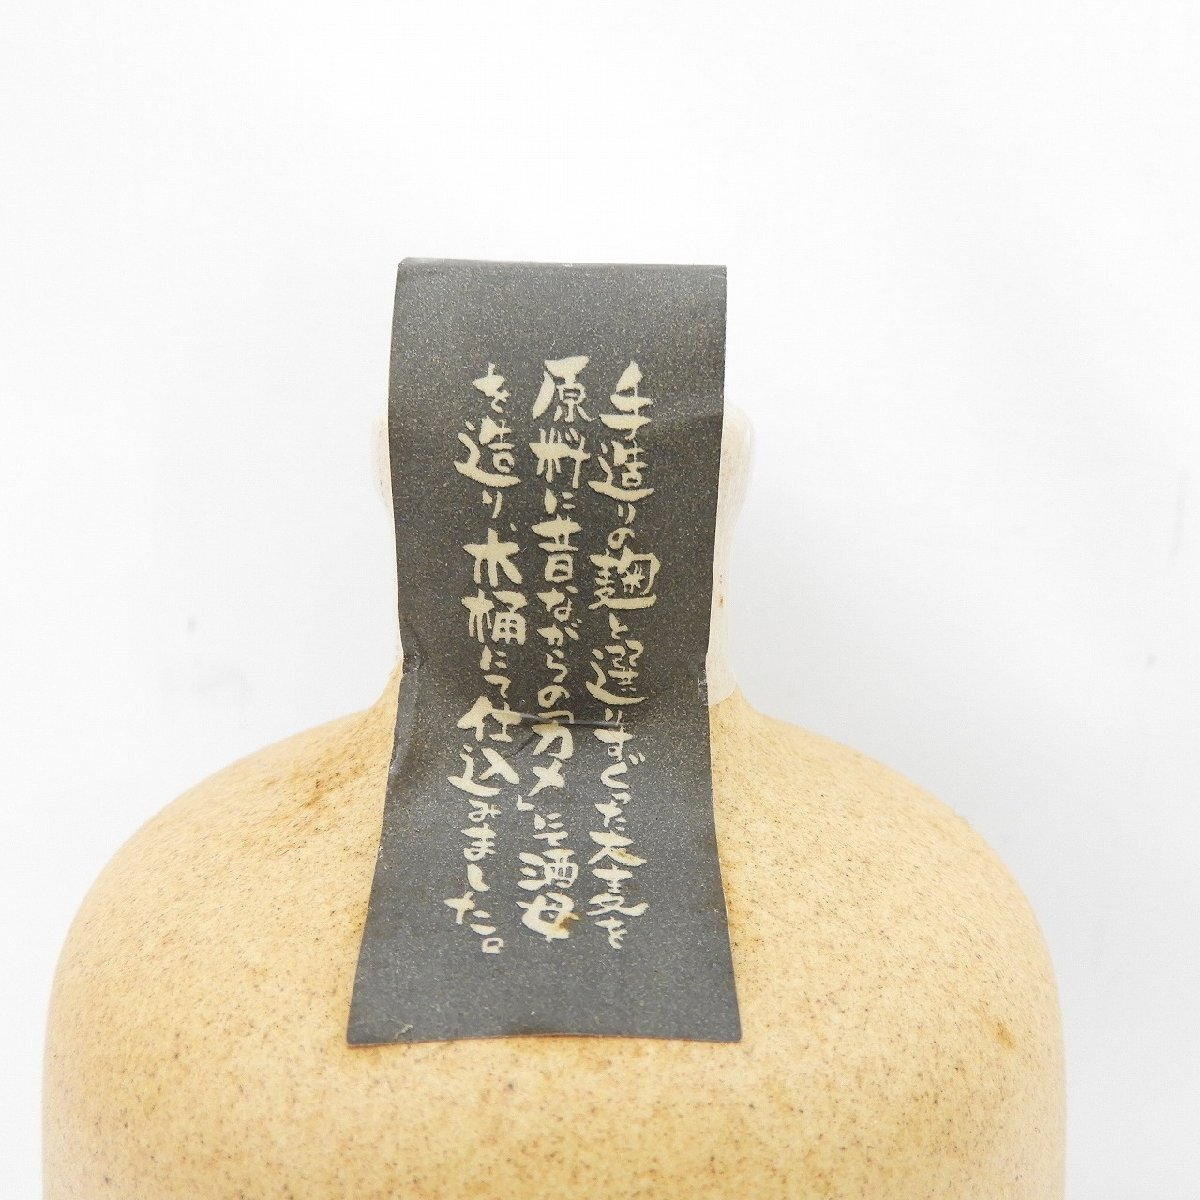 手造りの麹と選りすぐった大麦を
原料に昔ながらの「カメ」にて酒母
を造り、木桶にて仕込みました。